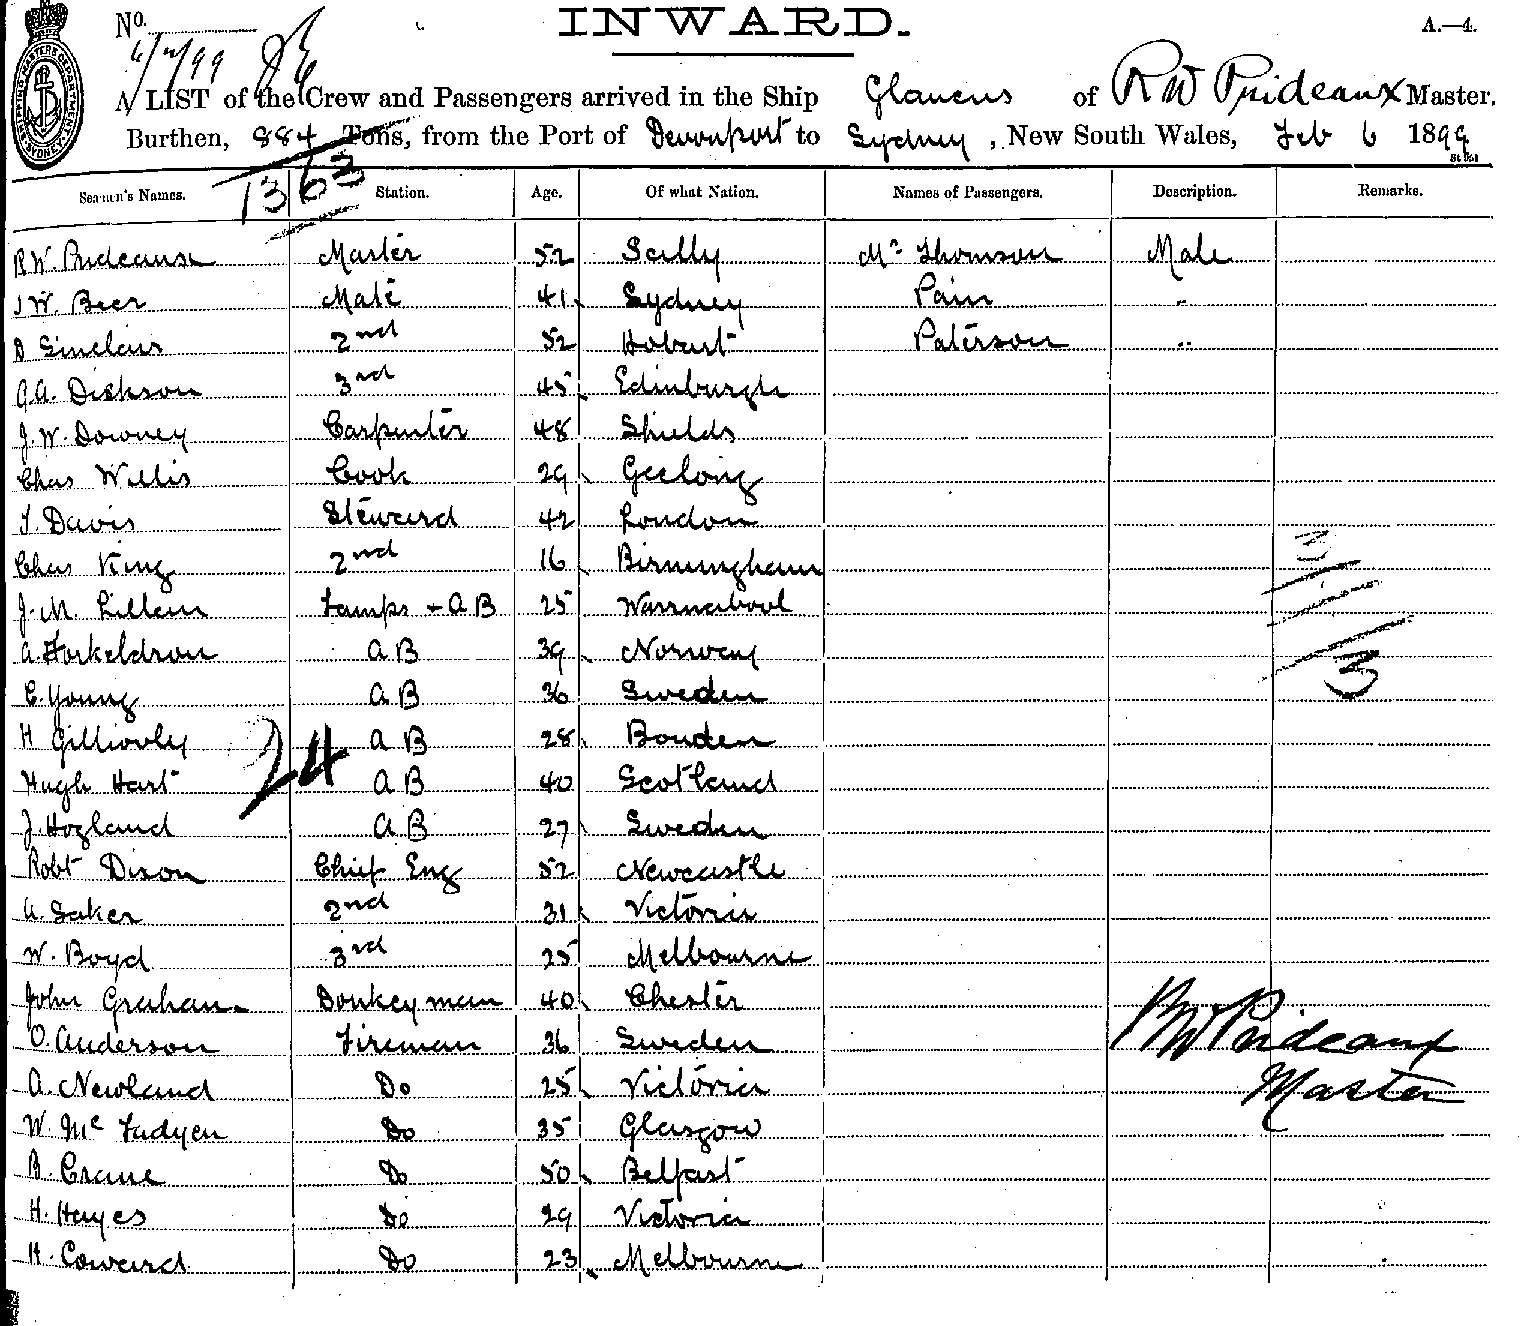 No.
INWARD.
A.—4.
6/2/99
A LIST of the Crew and Passengers arrived in the Ship Glaucus of R W Prideaux Master.
Burthen, 884 Tons, from the Port of Devonport to Sydney, New South Wales, Feb 6 1899
1363
Seamen's Names. Station. Age. Of what Nation. Names of Passengers. Description. Remarks.
R.W. Prideaux Master 52 Scilly Mr Thomson Male
J W. Beer Mate 41 Sydney Pain "
D Sinclair 2nd 52 Hobart Paterson "
G.A. Dickson 3rd 45 Edinburgh
J. W. Downey Carpenter 48 Shields
Chas Willis Cook 29 Geelong
T. Davis Steward 42 London
Chas King 2nd 16 Birmingham
3
J. M. Lamps + A B 25 Warrnabool
A. Torkeldson A B 39 Norway
3
C. Young A B 36 Sweden
H A B 28
24
Hugh Hart A B 40 Scotland
J. Hogland A B 27 Sweden
Robt Dixon Chief Eng 52 Newcastle
A. Saker 2nd 31 Victoria
W. Boyd 3rd 25 Melbourne
John Graham Donkeyman 40 Chester
O. Anderson Fireman 36 Sweden
RW Prideaux
A. Newland Do 25 Victoria
Master
W. Mc Fadyen Do 35 Glasgow
B. Crane Do 50 Belfast
H. Hayes Do 29 Victoria
H. Coward Do 23 Melbourne